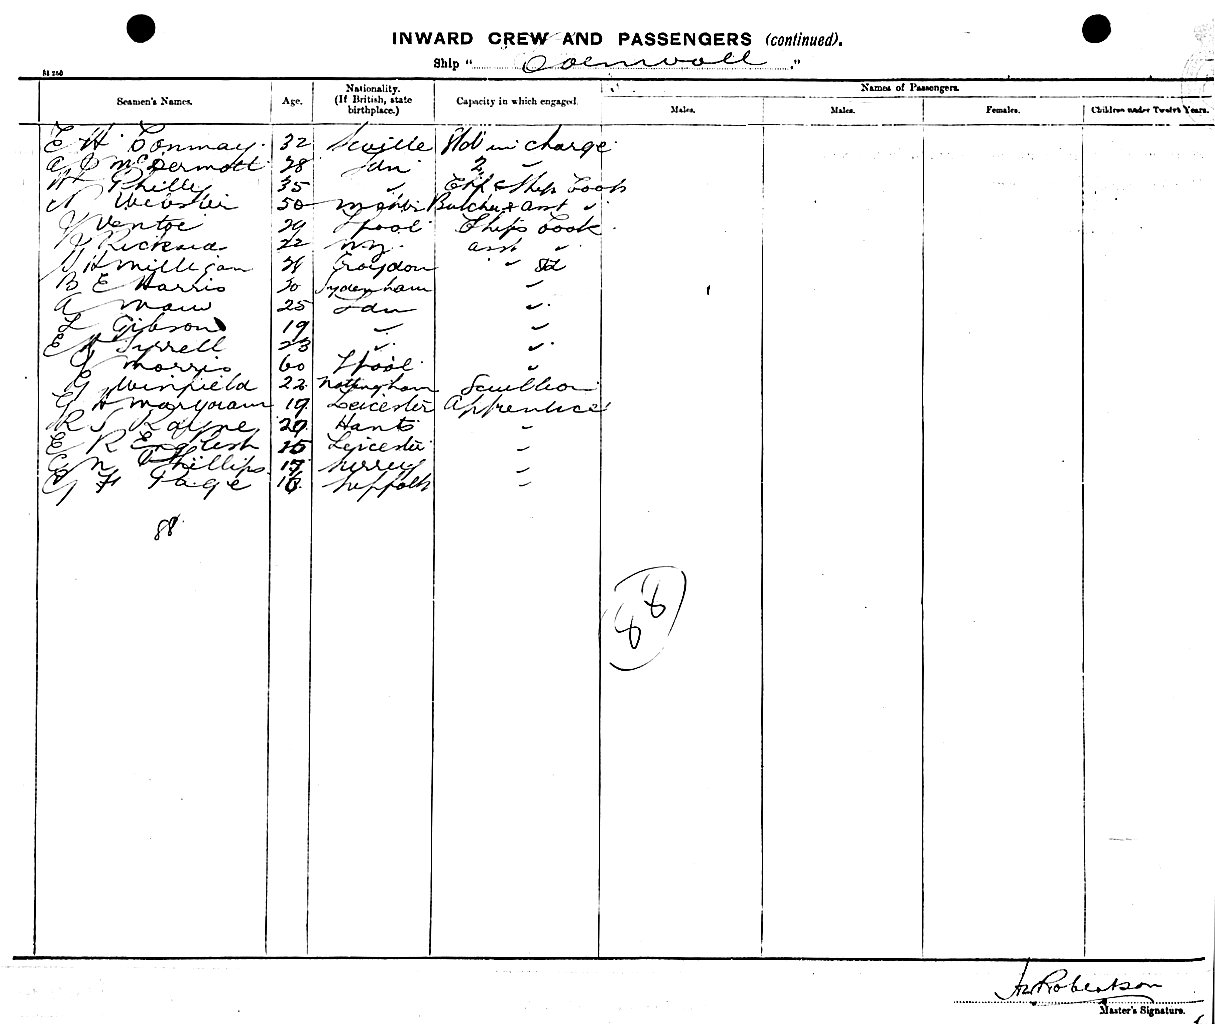 INWARD CREW AND PASSENGERS (continued).
Ship " Cornwall "
Seamen's Names. Age. Nationality. (If British, state birthplace.) Capacity in which engaged. Names of Passengers.
Males. Males. Females. Children under Twelve Years.
E H Conway 32 Seville Std in charge
A J McDermott 28 Ldn 2 "
35 " & Ships Cook
N Webster 50 Butcher & asst "
J Ventre 29 Lpool Ships Cook
22 N Z asst "
Milligan Croydon " Std
B E Harris 20 Sydenham "
A Maw 25 Ldn "
L Gibson 19 " "
E A Tyrrell 23 " "
J Morris 60 Lpool "
G Winfield 22 Nottingham Scullion
G H Marjoram 19 Leicester Apprentice
R S Hants "
E R English Leicester "
G N Phillips Surrey "
G F Page Suffolk "
88
88
Robertson
Master's Signature.